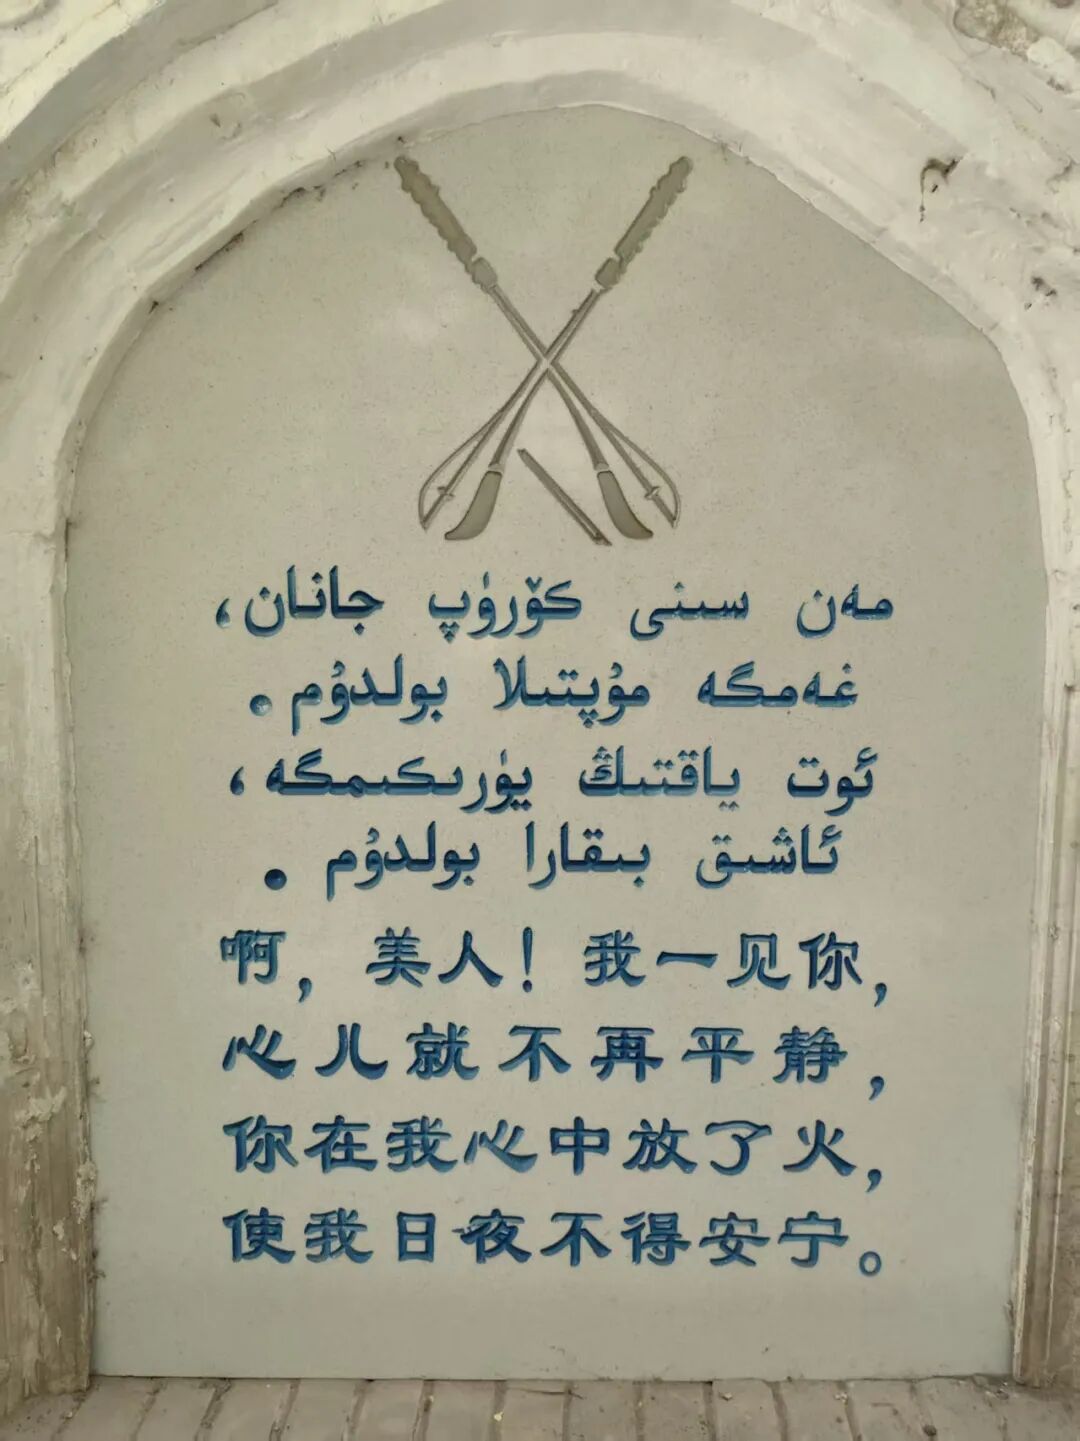 مەن سىنى كۆرۈپ جانان،
غەمگە مۇپتىلا بولدۇم.
ئوت ياقتىڭ يۈرىكىمگە،
ئاشىق بىقارا بولدۇم.
啊，美人！我一见你，
心儿就不再平静，
你在我心中放了火，
使我日夜不得安宁。